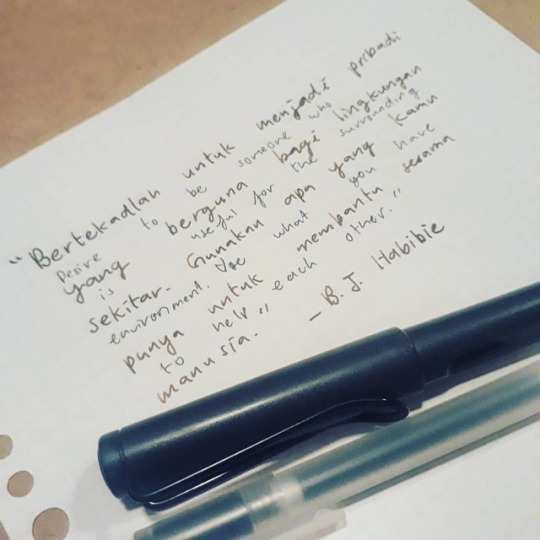 "Bertekadlah untuk menjadi pribadi
Desire to be someone who
yang berguna bagi lingkungan
is useful for the surrounding
sekitar. Gunakan apa yang kamu
environment. Use what you have
punya untuk membantu sesama
to help each other."
manusia."
- B. J. Habibie